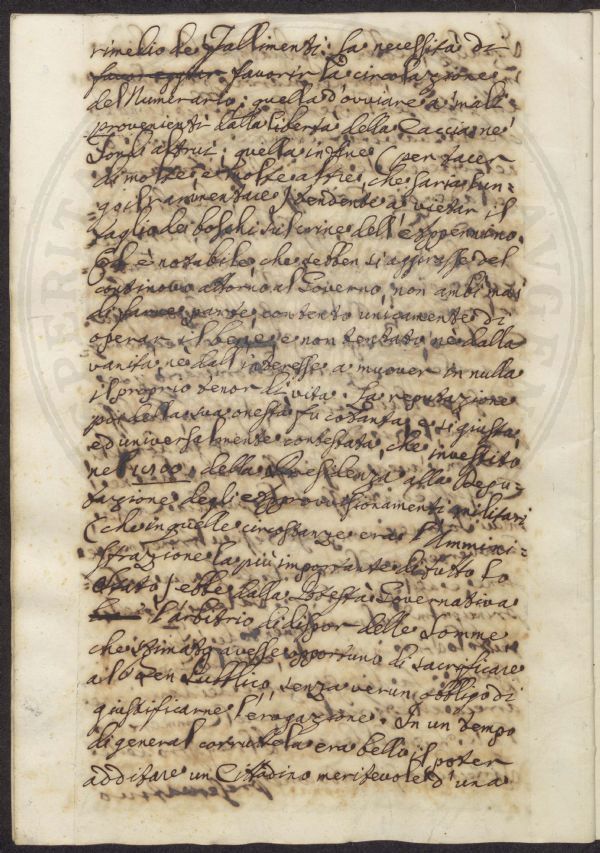 rimedio de' Fallimenti: la necessità di
favoreggiar favorir la circolazione
del Numerario: quella d'ovviare a' mali
provenienti dalla libertà della Caccia ne'
Fondi altrui: quella infine (per tacer
di molte e molte altre, che saria lun-
go il rammentare) tendente a vietar il
taglio dei boschi sul crine dell'Appennino.
Ed è notabile che sebben si aggirasse del
continovo attorno al Governo, non ambì mai
di farne parte, contento unicamente di
operar il bene, e non tentato nè dalla
vanità, nè dall'interesse a muover in nulla
il proprio tenor di vita. La reputazione
poi della sua onestà fu costante, e sì giusta
ed universalmente contestata, che investito
nel 1800 della Presidenza alla Depu-
tazione degli approvvisionamenti militari
(che in quelle circostanze era l'Ammini-
strazione la più importante di tutto lo
Stato) ebbe dalla Potestà Governativa
l'arbitrio di dispor delle Somme
che stimato avesse opportuno di sacrificare
al Ben Pubblico, senza verun obbligo di
giustificarne l'erogazione. In un tempo
di general corruttela era bello il poter
additare un Cittadino meritevole d'una